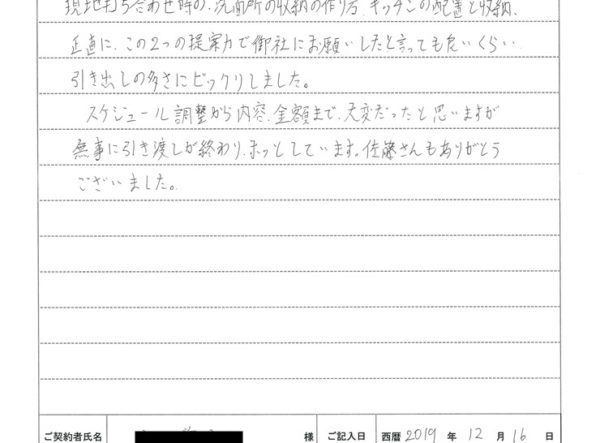 現地打ち合わせ時の、洗面所の収納の作り方、キッチンの配置と収納、
正直に、この2つの提案力で御社にお願いしたと言っても良いくらい
引き出しの多さにビックリしました。
スケジュール調整から内容、金額まで、大変だったと思いますが
無事に引き渡しが終わり、ホッとしています。佐藤さんもありがとう
ございました。
ご契約者氏名 様 ご記入日 西暦 2019 年 12 月 16 日